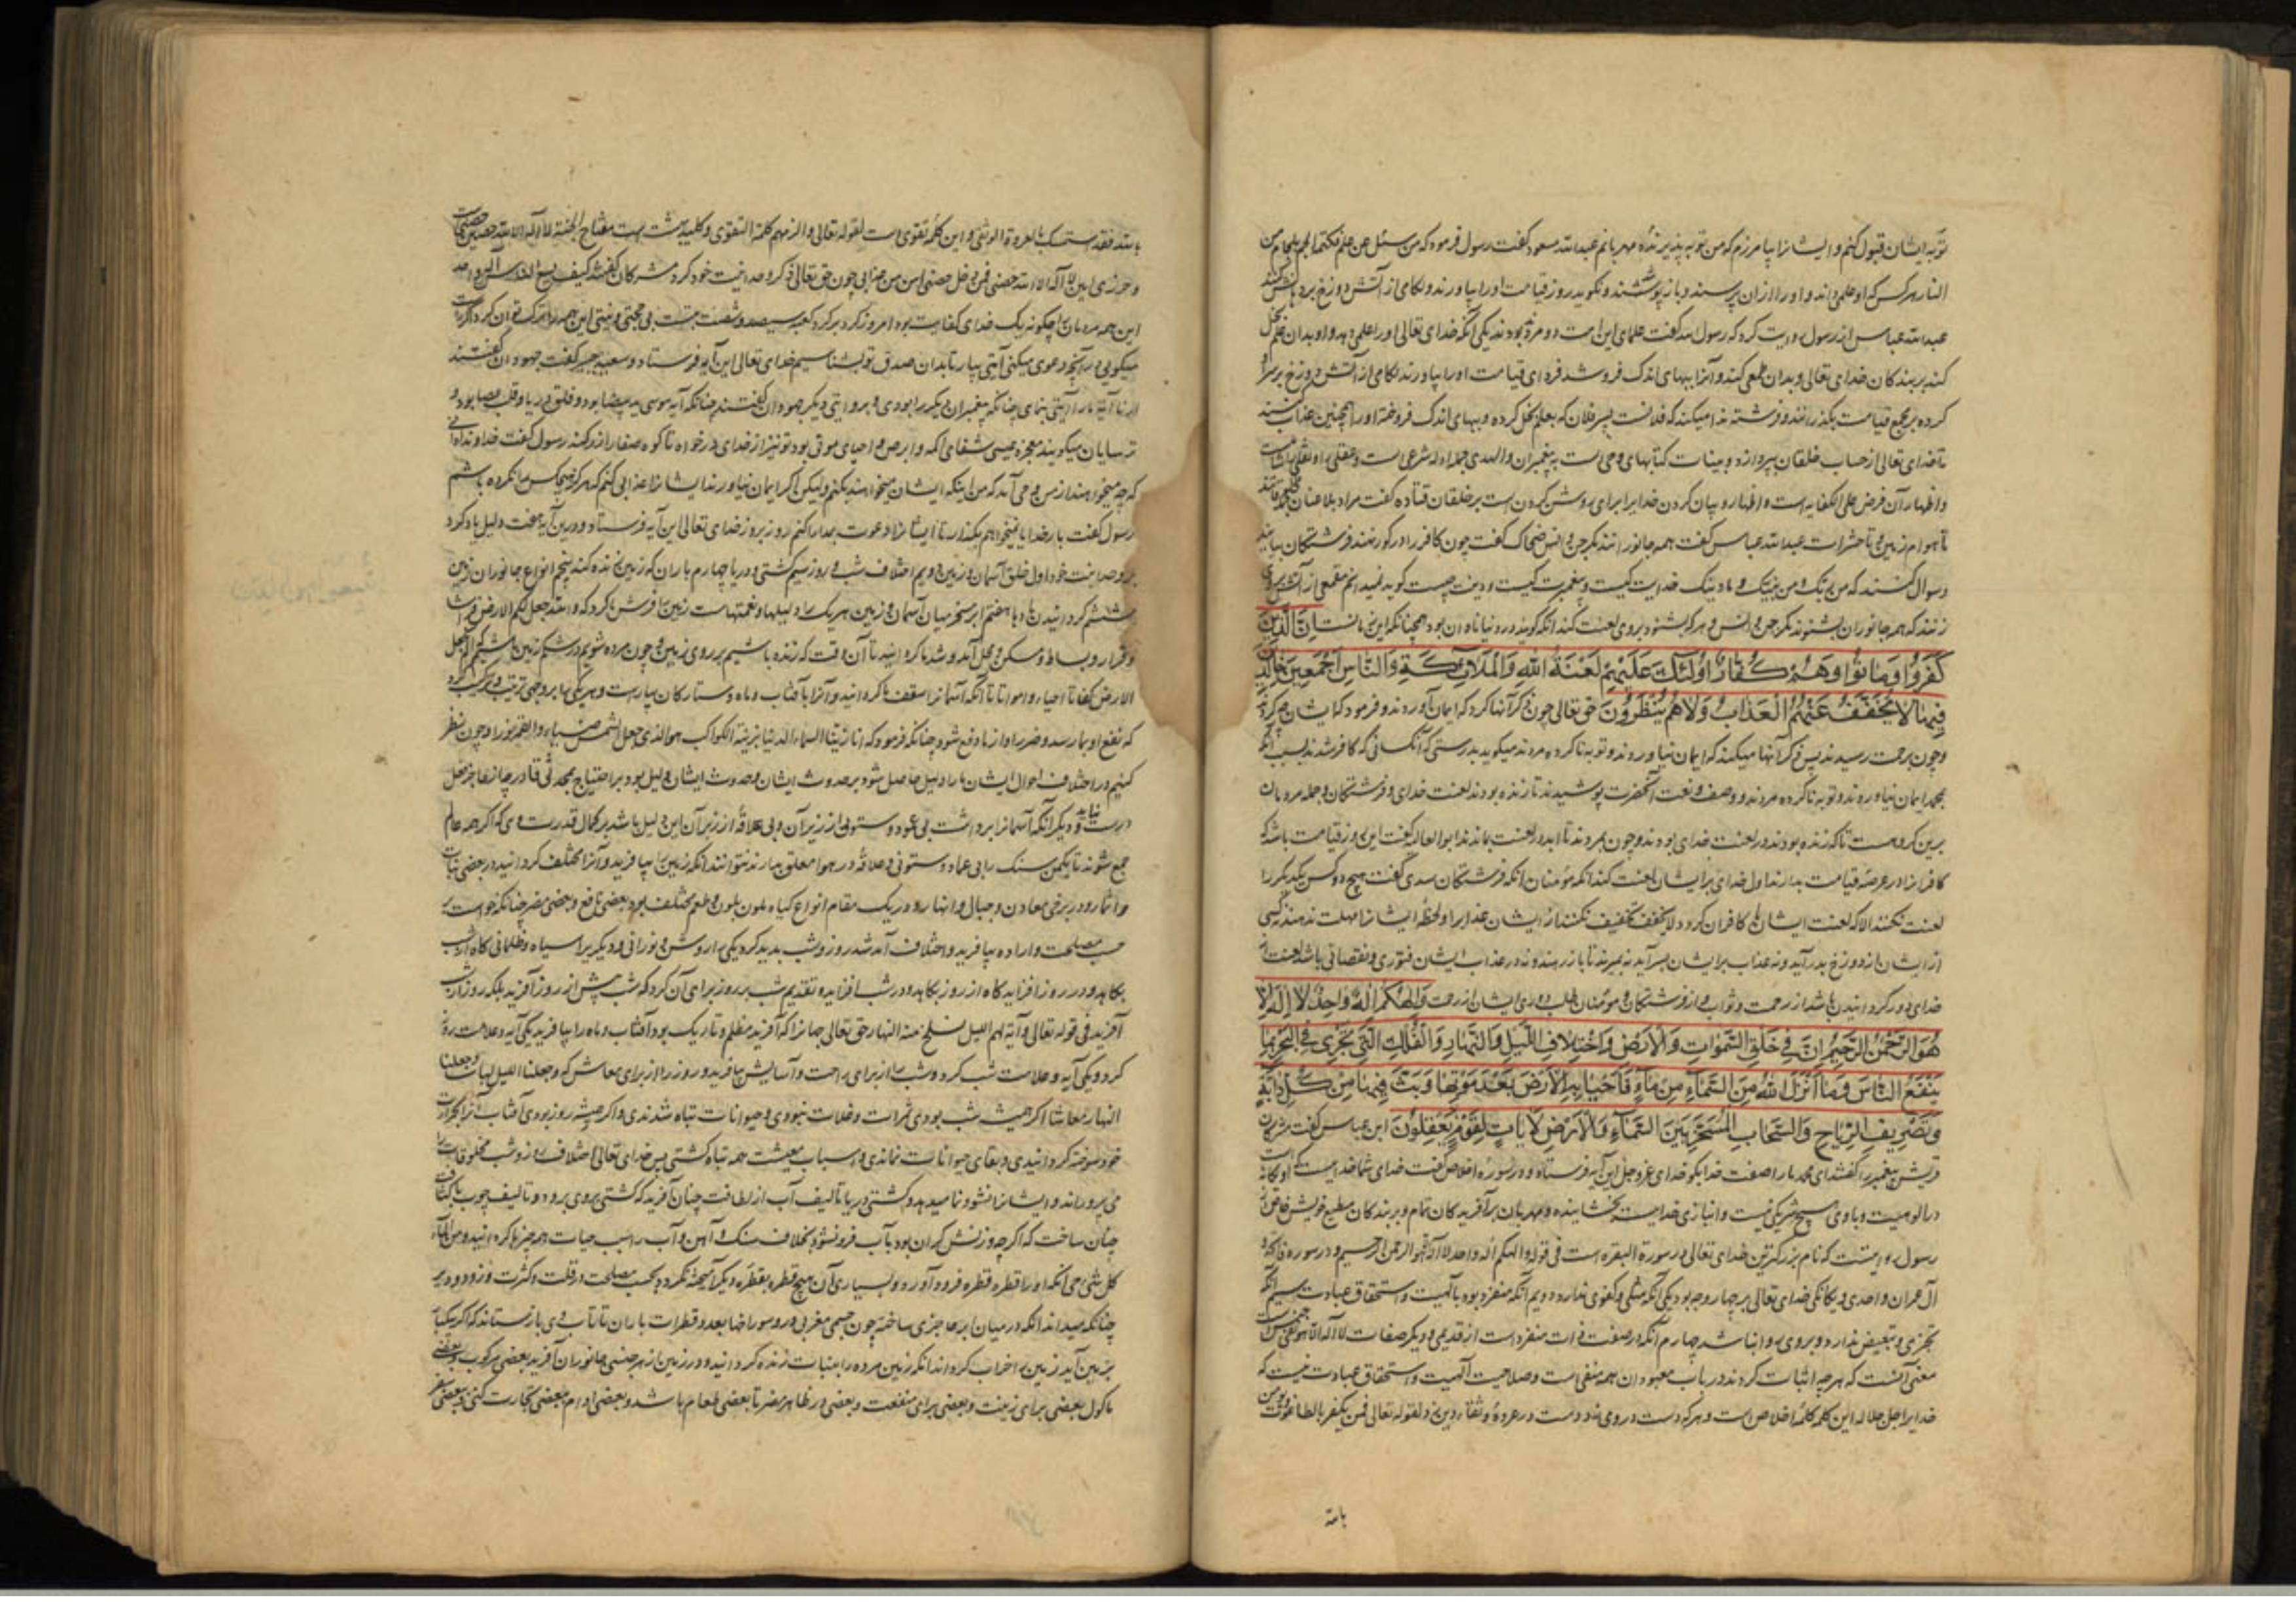 توبه ایشان قبول کنم و ایشانرا بیامرزم که من توبه پذیرنده مهربانم عبدالله مسعود کفت رسول فرمود که من سئل عن علم فکتمه الجم بلجام من
النار هر کس که او علمی داند و او را از ان پرسند و باز پوشند و نکوید روز قیامت او را بیاورند و لکامی از آتش دوزخ بر دهانش کنند
عبدالله عباس از رسول روایت کرد که رسول کفت علمای این امت دو مرد بودند یکی آنکه خدای تعالی او را علمی دهد و او بدان علم بخل
کند بر بندکان خدای تعالی و بدان طمعی کند و آنرا ببهای اندک فروشد فردای قیامت او را بیاورند لکامی از آتش دوزخ بر سر
کرده بر مجمع قیامت بکذرانند و فرشته ندا میکند که فلانست پسر فلان که بعلم بخل کرده و ببهای اندک فروخته او را همچنین عذاب کنند
تا خدای تعالی از حساب خلقان بپردازد و بینات کتابهای وحی است به پیغمبران و الهدی جمله ادله شرعی است و عقلی
و اظهار آن فرض علی الکفایه است و اظهار و بیان کردن خدایرا برای روشن کردن است بر خلقان قتاده کفت مراد بلاعنان
تا هوام زمین و تا حشرات عبدالله عباس کفت همه جانورانند مکر جن و انس ضحاک کفت چون کافر را در کور نهند فرشتکان بیایند
و سوال کنند که من ربک و من نبیک و ما دینک خدایت کیست و پیغمبرت کیست و دینت چیست کوید نمیدانم مقمعی از آتش
زنند که همه جانوران بشنوند مکر جن و انس و هر که بشنود بروی لعنت کند آنکه کویند در دنیا نادان بود همچنانکه این زمانست اِنَّ الَّذِينَ
كَفَرُوا وَمَاتُوا وَهُمْ كُفَّارٌ اُولٰئِكَ عَلَيْهِمْ لَعْنَةُ اللهِ وَالْمَلٰائِكَةِ وَالنَّاسِ اَجْمَعِينَ خَالِدِينَ
فِيهَا لَا يُخَفَّفُ عَنْهُمُ الْعَذَابُ وَلَا هُمْ يُنْظَرُونَ حق تعالی چون ذکر آنها کرد که ایمان آوردند و فرمود که ایشان
و چون برحمت رسیدند پس ذکر آنها میکند که ایمان نیاوردند و توبه ناکرده مردند میکوید بدرستی که آنکسانی که کافر شدند بسبب آنکه
بمحمد ایمان نیاوردند و توبه ناکرده مردند و وصف و نعت آنحضرت پوشیدند تا زنده بودند لعنت خدای و فرشتکان و جمله مردمان
برین کروهست تا که زنده بودند در لعنت خدای بودند و چون بمردند تا ابد در لعنت بمانند ابوالعالیه کفت این روز قیامت باشد که
کافرانرا در عرصه قیامت بدارند اول خدای بر ایشان لعنت کند آنکه مؤمنان آنکه فرشتکان سدی کفت هیچ دو کس یکدیکر را
لعنت نکنند الا که لعنت ایشان با کافران کردد لا یخفف تخفیف نکنند از ایشان عذاب را و لحظه ایشانرا مهلت ندهند
از ایشان از دوزخ بدر آید و نه عذاب بر ایشان بسر آید نه بمیرند تا باز رهند و نه در عذاب ایشان فتوری و نقصانی باشد لعنت از
خدای دور کردانیدن باشد از رحمت و ثواب و از فرشتکان و مؤمنان طلب دوری ایشان از رحمت وَاِلٰهُكُمْ اِلٰهٌ وَاحِدٌ لَا اِلٰهَ اِلَّا
هُوَ الرَّحْمٰنُ الرَّحِيمُ اِنَّ فِي خَلْقِ السَّمٰوَاتِ وَالْاَرْضِ وَاخْتِلَافِ اللَّيْلِ وَالنَّهَارِ وَالْفُلْكِ الَّتِي تَجْرِي فِي الْبَحْرِ بِمَا
يَنْفَعُ النَّاسَ وَمَا اَنْزَلَ اللهُ مِنَ السَّمَآءِ مِنْ مَآءٍ فَاَحْيَا بِهِ الْاَرْضَ بَعْدَ مَوْتِهَا وَبَثَّ فِيهَا مِنْ كُلِّ دَابَّةٍ
وَتَصْرِيفِ الرِّيَاحِ وَالسَّحَابِ الْمُسَخَّرِ بَيْنَ السَّمَآءِ وَالْاَرْضِ لَاٰيَاتٍ لِقَوْمٍ يَعْقِلُونَ ابن عباس کفت مشرکان
قریش پیغمبر را کفتند ای محمد ما را صفت خدا بکو خدای عزوجل این آیه فرستاد و در سوره اخلاص کفت خدای شما خداییست که او یکانه است
در الوهیت و با وی هیچ شریکی نیست و انبازی خداییست بخشاینده و مهربان بر آفریدکان تمام و بر بندکان مطیع خویش خاص از
رسول روایتست که نام بزرکترین خدای تعالی در سورة البقره است فی قوله والهکم اله واحد لا اله الا هو الرحمن الرحیم و در سوره
آل عمران و احدی و یکانکی خدای تعالی بر چهار وجه بود یکی آنکه مثلی و کفوی ندارد دویم آنکه منفرد بود بالهیت و استحقاق عبادت سیم آنکه
تجزی و تبعیض ندارد و بروی روا نباشد چهارم آنکه در صفت ذات منفرد است از قدیمی و دیکر صفات لا اله الا هو
معنی آنست که هرچه اثبات کردند در باب معبودان همه منفی است و صلاحیت الهیت و استحقاق عبادت نیست که
خدایرا جل جلاله این کلمه کلمه اخلاص است و هر که دست در وی زند دست در عروة وثقی زد لقوله تعالی فمن یکفر بالطاغوت ویؤمن
بالله
بالله فقد استمسک بالعروة الوثقی و این کلمه تقوی است لقوله تعالی والزمهم کلمة التقوی و کلید بهشت است مفتاح الجنة لا اله الا الله
و حرزی امین لا اله الا الله حصنی فمن دخل حصنی امن من عذابی چون حق تعالی ذکر وحدانیت خود کرد مشرکان کفتند کیف یسع الناس اله واحد
این همه مردمان را چکونه یک خدای کفایت بود امروز کرد بر کرد کعبه سیصد و شصت بتست بی حجتی و بینتی این همه را ترک توان کرد
میکویی در آنچه دعوی میکنی آیتی بیار تا بدان صدق تو بشناسیم خدای تعالی این آیه فرستاد و سعید جبیر کفت جهودان کفتند
ارنا آیة ما را آیتی بنمای چنانکه پیغمبران دیکر را بودی و بروایتی دیکر جهودان کفتند چنانکه آیه موسی ید بیضا بود و فلق دریا و قلب عصا بود و
ترسایان میکویند معجزه عیسی شفای اکمه و ابرص و احیای موتی بود تو نیز از خدای درخواه تا کوه صفا را زر کند رسول کفت خداوندا
که چه میخواهند از من وحی آمد که من اینکه ایشان میخواهند بکنم ولیکن اکر ایمان نیاورند ایشانرا عذابی کنم که هرکز هیچکس را نکرده باشم
رسول کفت بار خدایا نمیخواهم بکذار تا ایشانرا دعوت میدارا کنم روز بروز خدای تعالی این آیه فرستاد و درین آیه هفت دلیل یاد کرد
بر وحدانیت خود اول خلق آسمان و زمین دویم اختلاف شب و روز سیم کشتی و دریا چهارم باران که زمین زنده کند پنجم انواع جانوران زمین
ششم کردانیدن بادها هفتم ابر مسخر میان آسمان و زمین هر یک را دلیلها و نعمتهاست زمین را فرش ما کرد که والله جعل لکم الارض فراشا
و قرار و بساط و مسکن و محل آمد و شد ما کردانید تا آن وقت که زنده باشیم بر روی زمین و چون مرده شویم در شکم زمین باشیم الم نجعل
الارض کفاتا احیاء و امواتا تا آنکه آسمانرا سقف ما کردانید و آنرا بآفتاب و ماه و ستارکان بیاراست و هر یکی را بر وجهی ترتیب و ترکیب کرد
که نفع او بما رسد و ضرر او از ما دفع شود چنانکه فرمود که انا زینا السماء الدنیا بزینة الکواکب هو الذی جعل الشمس ضیاء والقمر نورا و چون نظر
کنیم در اختلاف احوال ایشان ما را دلیل حاصل شود بر حدوث ایشان و حدوث ایشان دلیل بود بر احتیاج بمحدثی قادر
درست و دیکر آنکه آسمانرا برداشت بی عمود و ستونی از زیر آن و بی علاقه از زبر آن این دلیل باشد بر کمال قدرت وی که اکر همه عالم
جمع شوند تا یکمن سنک را بی عماد و ستونی و علاقه در هوا معلق بدارند نتوانند آنکه زمین را بیافرید و آنرا مختلف کردانید در بعضی نبات
و اثمار و در برخی معادن و جبال و انهار و در یک مقام انواع کیاه بلون بلون و طعم مختلف بود بعضی نافع و بعضی مضر چنانکه خواست بر
حسب مصلحت و اراده بیافرید و اختلاف آمد شد روز و شب پدید کرد یکی را روشن و نورانی و دیکریرا سیاه و ظلمانی کاه از شب
بکاهد و در روز افزاید کاه از روز بکاهد و در شب افزاید و تقدیم شب بر روز برای آن کرد که شب پیش از روز آفرید بلکه روز از شب
آفرید فی قوله تعالی و آیة لهم اللیل نسلخ منه النهار حق تعالی جهانرا که آفرید مظلم و تاریک بود آفتاب و ماه را بیافرید یکی آیه و علامت روز
کرد و یکی آیه و علامت شب کرد و شب را از برای راحت و آسایش بیافرید و روز را از برای معاش که وجعلنا اللیل لباسا وجعلنا
النهار معاشا اکر همیشه شب بودی ثمرات و غلات نبودی و حیوانات تباه شدندی و اکر همیشه روز بودی آفتاب آنرا بحرارت
خود سوخته کردانیدی و بقای حیوانات نماندی و اسباب معیشت همه تباه کشتی پس خدای تعالی باختلاف روز و شب مخلوقات را
می پروراند و ایشانرا نشو و نما میدهد و کشتی و دریا تالیف آب از لطافت چنان آفرید که کشتی بروی برود و تالیف چوب
چنان ساخت که اکر چه وزنش کران بود بآب فرو نشود بخلاف سنک و آهن و آب را سبب حیات همه چیز ها کردانید و من الماء
کل شیء حی آنکه او را قطره قطره فرود آورد و بسیاری آن هیچ قطره بقطره دیکر آمیخته نکردد بحسب مصلحت در قلت و کثرت و زود و دیر
چنانکه میداند آنکه در میان ابر حاجزی ساخته چون جسمی مغربی و روسوراخها بعدد قطرات باران تا آب وی باز ستاند که اکر یکبار
بزمین آید زمین را خراب کرداند آنکه زمین مرده را بنبات زنده کردانید و در زمین از هر جنسی جانوران آفرید بعضی مرکوب و بعضی
ماکول بعضی برای زینت و بعضی برای منفعت و بعضی در ظاهر مضر تا بعضی طعام باشد و بعضی ادام بعضی تجارت کنی و بعضی